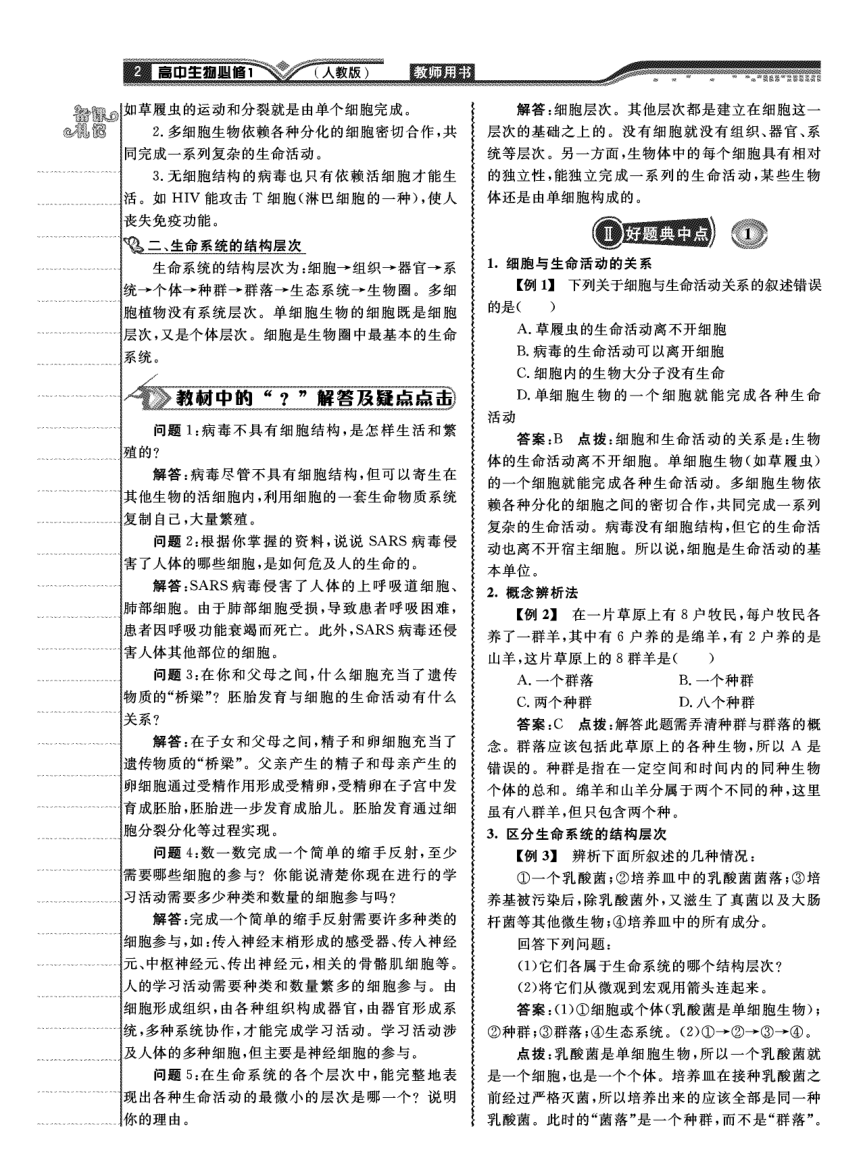 2 高中生物必修1 (人教版) 教师用书
备课札记
如草履虫的运动和分裂就是由单个细胞完成。
2.多细胞生物依赖各种分化的细胞密切合作,共
同完成一系列复杂的生命活动。
3.无细胞结构的病毒也只有依赖活细胞才能生
活。如 HIV 能攻击 T 细胞(淋巴细胞的一种),使人
丧失免疫功能。
二、生命系统的结构层次
生命系统的结构层次为:细胞→组织→器官→系
统→个体→种群→群落→生态系统→生物圈。多细
胞植物没有系统层次。单细胞生物的细胞既是细胞
层次,又是个体层次。细胞是生物圈中最基本的生命
系统。
教材中的“?”解答及疑点点击
问题 1:病毒不具有细胞结构,是怎样生活和繁
殖的?
解答:病毒尽管不具有细胞结构,但可以寄生在
其他生物的活细胞内,利用细胞的一套生命物质系统
复制自己,大量繁殖。
问题 2:根据你掌握的资料,说说 SARS 病毒侵
害了人体的哪些细胞,是如何危及人的生命的。
解答:SARS 病毒侵害了人体的上呼吸道细胞、
肺部细胞。由于肺部细胞受损,导致患者呼吸困难,
患者因呼吸功能衰竭而死亡。此外,SARS 病毒还侵
害人体其他部位的细胞。
问题 3:在你和父母之间,什么细胞充当了遗传
物质的“桥梁”? 胚胎发育与细胞的生命活动有什么
关系?
解答:在子女和父母之间,精子和卵细胞充当了
遗传物质的“桥梁”。父亲产生的精子和母亲产生的
卵细胞通过受精作用形成受精卵,受精卵在子宫中发
育成胚胎,胚胎进一步发育成胎儿。胚胎发育通过细
胞分裂分化等过程实现。
问题 4:数一数完成一个简单的缩手反射,至少
需要哪些细胞的参与? 你能说清楚你现在进行的学
习活动需要多少种类和数量的细胞参与吗?
解答:完成一个简单的缩手反射需要许多种类的
细胞参与,如:传入神经末梢形成的感受器、传入神经
元、中枢神经元、传出神经元,相关的骨骼肌细胞等。
人的学习活动需要种类和数量繁多的细胞参与。由
细胞形成组织,由各种组织构成器官,由器官形成系
统,多种系统协作,才能完成学习活动。学习活动涉
及人体的多种细胞,但主要是神经细胞的参与。
问题 5:在生命系统的各个层次中,能完整地表
现出各种生命活动的最微小的层次是哪一个? 说明
你的理由。
解答:细胞层次。其他层次都是建立在细胞这一
层次的基础之上的。没有细胞就没有组织、器官、系
统等层次。另一方面,生物体中的每个细胞具有相对
的独立性,能独立完成一系列的生命活动,某些生物
体还是由单细胞构成的。
Ⅱ 好题典中点 1
1. 细胞与生命活动的关系
【例 1】 下列关于细胞与生命活动关系的叙述错误
的是( )
A. 草履虫的生命活动离不开细胞
B. 病毒的生命活动可以离开细胞
C. 细胞内的生物大分子没有生命
D. 单细胞生物的一个细胞就能完成各种生命
活动
答案:B 点拨:细胞和生命活动的关系是:生物
体的生命活动离不开细胞。单细胞生物(如草履虫)
的一个细胞就能完成各种生命活动。多细胞生物依
赖各种分化的细胞之间的密切合作,共同完成一系列
复杂的生命活动。病毒没有细胞结构,但它的生命活
动也离不开宿主细胞。所以说,细胞是生命活动的基
本单位。
2. 概念辨析法
【例 2】 在一片草原上有 8 户牧民,每户牧民各
养了一群羊,其中有 6 户养的是绵羊,有 2 户养的是
山羊,这片草原上的 8 群羊是( )
A. 一个群落 B. 一个种群
C. 两个种群 D. 八个种群
答案:C 点拨:解答此题需弄清种群与群落的概
念。群落应该包括此草原上的各种生物,所以 A 是
错误的。种群是指在一定空间和时间内的同种生物
个体的总和。绵羊和山羊分属于两个不同的种,这里
虽有八群羊,但只包含两个种。
3. 区分生命系统的结构层次
【例 3】 辨析下面所叙述的几种情况:
①一个乳酸菌;②培养皿中的乳酸菌菌落;③培
养基被污染后,除乳酸菌外,又滋生了真菌以及大肠
杆菌等其他微生物;④培养皿中的所有成分。
回答下列问题:
(1)它们各属于生命系统的哪个结构层次?
(2)将它们从微观到宏观用箭头连起来。
答案:(1)①细胞或个体(乳酸菌是单细胞生物);
②种群;③群落;④生态系统。(2)①→②→③→④。
点拨:乳酸菌是单细胞生物,所以一个乳酸菌就
是一个细胞,也是一个个体。培养皿在接种乳酸菌之
前经过严格灭菌,所以培养出来的应该全部是同一种
乳酸菌。此时的“菌落”是一个种群,而不是“群落”。